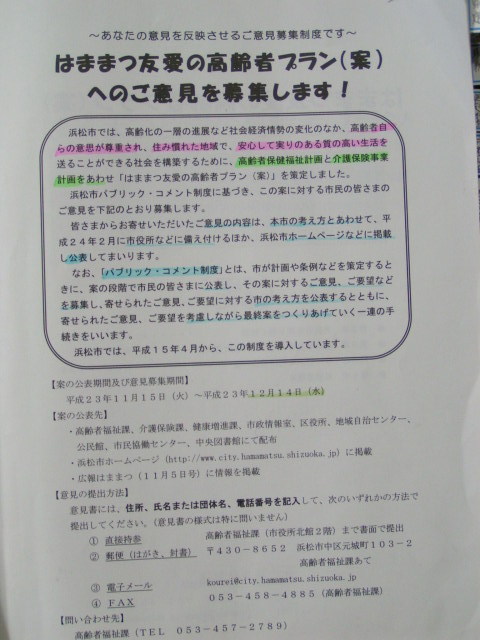 ～あなたの意見を反映させるご意見募集制度です～
はままつ友愛の高齢者プラン（案）
へのご意見を募集します！
浜松市では、高齢化の一層の進展など社会経済情勢の変化のなか、高齢者自
らの意思が尊重され、住み慣れた地域で、安心して実りのある質の高い生活を
送ることができる社会を構築するために、高齢者保健福祉計画と介護保険事業
計画をあわせ「はままつ友愛の高齢者プラン（案）」を策定しました。
浜松市パブリック・コメント制度に基づき、この案に対する市民の皆さまの
ご意見を下記のとおり募集します。
皆さまからお寄せいただいたご意見の内容は、本市の考え方とあわせて、平
成２４年２月に市役所などに備え付けるほか、浜松市ホームページなどに掲載
し公表してまいります。
なお、「パブリック・コメント制度」とは、市が計画や条例などを策定すると
きに、案の段階で市民の皆さまに公表し、その案に対するご意見、ご要望など
を募集し、寄せられたご意見、ご要望に対する市の考え方を公表するとともに、
寄せられたご意見、ご要望を考慮しながら最終案をつくりあげていく一連の手
続きをいいます。
浜松市では、平成１５年４月から、この制度を導入しています。
【案の公表期間及び意見募集期間】
平成２３年１１月１５日（火）～平成２３年１２月１４日（水）
【案の公表先】
・高齢者福祉課、介護保険課、健康増進課、市政情報室、区役所、地域自治センター、
公民館、市民協働センター、中央図書館にて配布
・浜松市ホームページ（http://www.city.hamamatsu.shizuoka.jp）に掲載
・広報はままつ（１１月５日号）に情報を掲載
【意見の提出方法】
意見書には、住所、氏名または団体名、電話番号を記入して、次のいずれかの方法で
提出してください。（意見書の様式は特に問いません）
① 直接持参 高齢者福祉課（市役所北館２階）まで書面で提出
② 郵便（はがき、封書） 〒４３０－８６５２ 浜松市中区元城町１０３－２
高齢者福祉課あて
③ 電子メール kourei@city.hamamatsu.shizuoka.jp
④ ＦＡＸ ０５３－４５８－４８８５（高齢者福祉課）
【問い合わせ先】
高齢者福祉課（ＴＥＬ ０５３－４５７－２７８９）